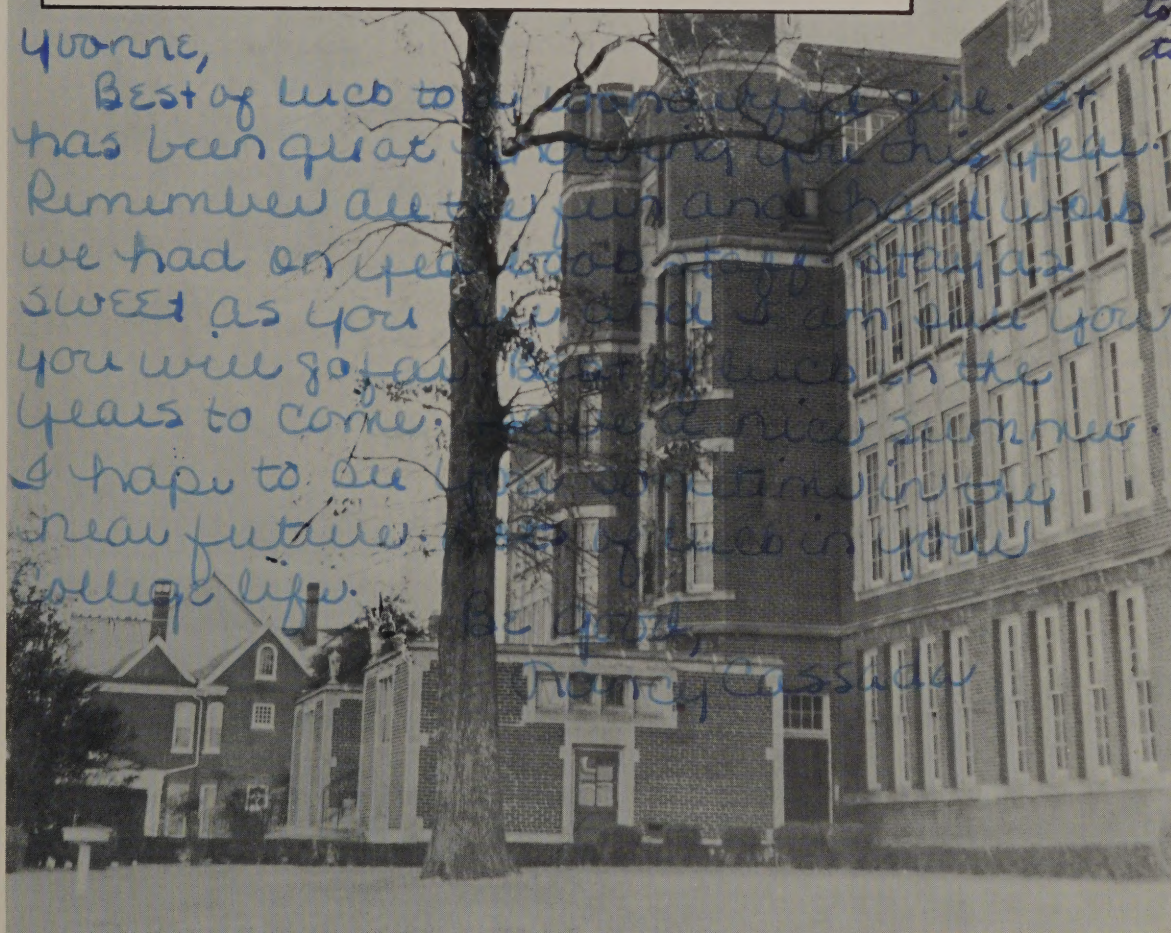 Yvonne,
Best of luck to a wonderful girl. It
has been great knowing you this year.
Remember all the fun and hard work
we had on yearbook staff. Stay as
sweet as you are and I am sure you
you will go far. Best of luck in the
years to come. Have a nice summer.
I hope to see you sometime in the
near future. Lots of luck in your
college life.
Be good,
Nancy Cassada